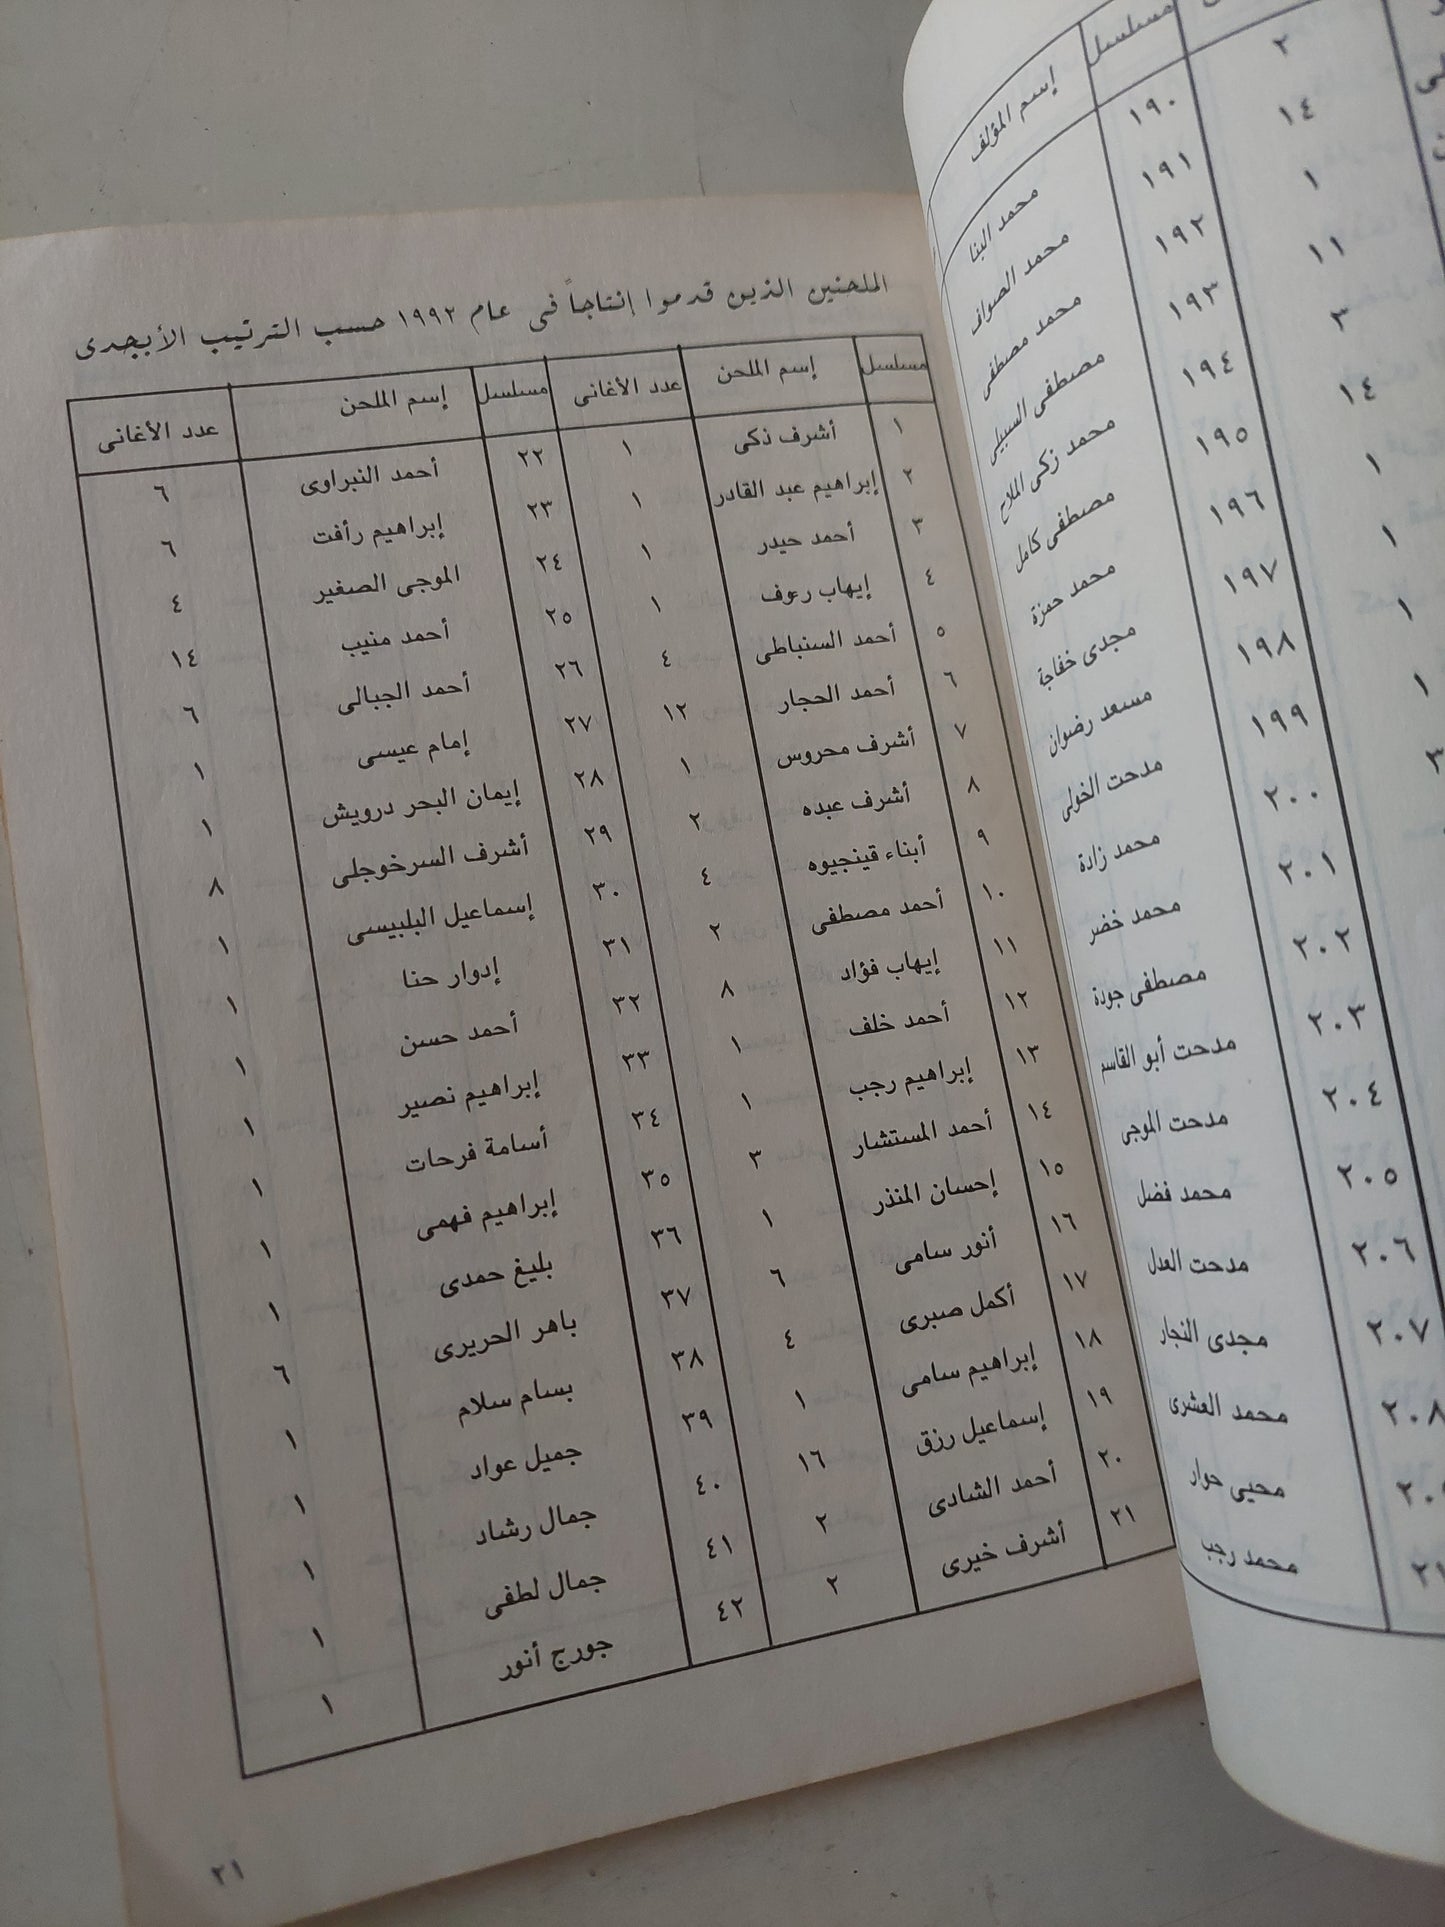 الملحنين الذين قدموا إنتاجاً فى عام ١٩٩٢ حسب الترتيب الأبجدى
مسلسل إسم الملحن عدد الأغانى مسلسل إسم الملحن عدد الأغانى
١ أشرف ذكى ١ ٢٢ أحمد النبراوى ٦
٢ إبراهيم عبد القادر ١ ٢٣ إبراهيم رأفت ٦
٣ أحمد حيدر ١ ٢٤ الموجى الصغير ٤
٤ إيهاب رءوف ١ ٢٥ أحمد منيب ١٤
٥ أحمد السنباطى ٤ ٢٦ أحمد الجبالى ٦
٦ أحمد الحجار ١٢ ٢٧ إمام عيسى ١
٧ أشرف محروس ١ ٢٨ إيمان البحر درويش ١
٨ أشرف عبده ٢ ٢٩ أشرف السرخوجلى ٨
٩ أبناء قينجيوه ٤ ٣٠ إسماعيل البلبيسى ١
١٠ أحمد مصطفى ٢ ٣١ إدوار حنا ١
١١ إيهاب فؤاد ٨ ٣٢ أحمد حسن ١
١٢ أحمد خلف ١ ٣٣ إبراهيم نصير ١
١٣ إبراهيم رجب ١ ٣٤ أسامة فرحات ١
١٤ أحمد المستشار ٣ ٣٥ إبراهيم فهمى ١
١٥ إحسان المنذر ١ ٣٦ بليغ حمدى ١
١٦ أنور سامى ٦ ٣٧ باهر الحريرى ٦
١٧ أكمل صبرى ٤ ٣٨ بسام سلام ١
١٨ إبراهيم سامى ١ ٣٩ جميل عواد ١
١٩ إسماعيل رزق ١٦ ٤٠ جمال رشاد ١
٢٠ أحمد الشادى ٢ ٤١ جمال لطفى ١
٢١ أشرف خيرى ٢ ٤٢ جورج أنور ١
٢١
مسلسل إسم المؤلف
٢ ١٩٠ محمد البنا
١٤ ١٩١ محمد الصواف
١ ١٩٢ محمد مصطفى
١١ ١٩٣ مصطفى السبيلى
٣ ١٩٤ محمد زكى الملاح
١٤ ١٩٥ مصطفى كامل
١ ١٩٦ محمد حمزة
١ ١٩٧ مجدى خفاجة
١ ١٩٨ مسعد رضوان
١ ١٩٩ مدحت الخولى
٣ ٢٠٠ محمد زادة
٢٠١ محمد خضر
٢٠٢ مصطفى جودة
٢٠٣ مدحت أبو القاسم
٢٠٤ مدحت الموجى
٢٠٥ محمد فضل
٢٠٦ مدحت العدل
٢٠٧ مجدى النجار
٢٠٨ محمد العشرى
محيى حوار
محمد رجب